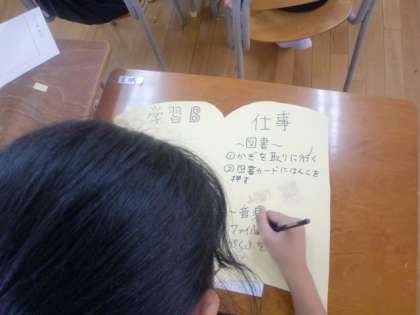 学習B
仕事
～図書～
①かぎを取りに行く
②図書カードにはんこを
押す
～音楽
ファイル